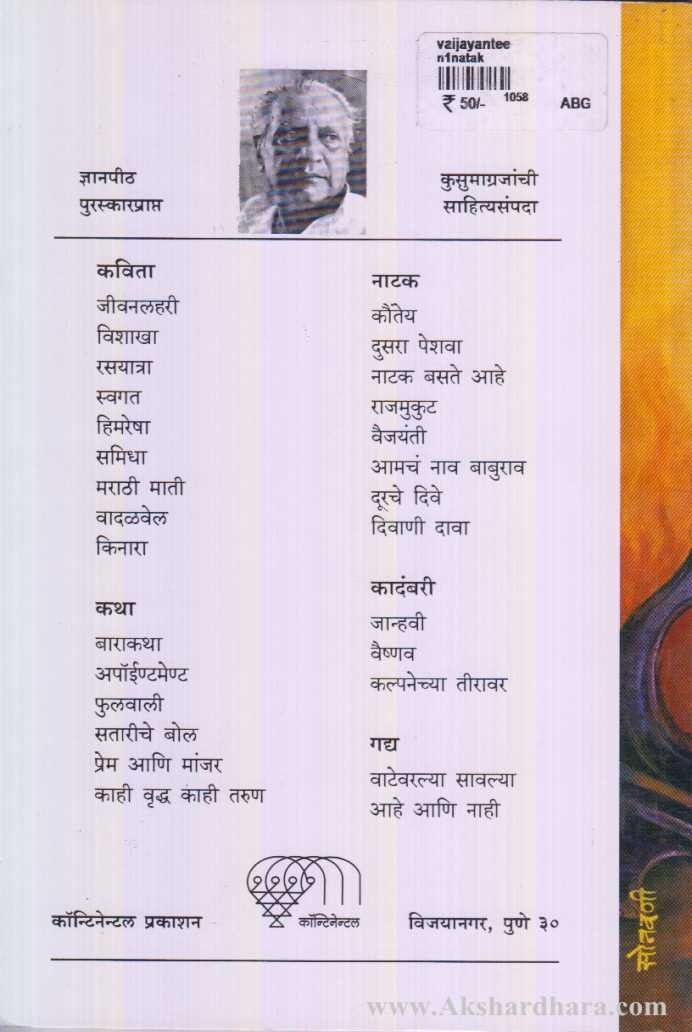 vaijayantee
n1natak
₹ 50/- 1058 ABG
ज्ञानपीठ
पुरस्कारप्राप्त
कुसुमाग्रजांची
साहित्यसंपदा
कविता
जीवनलहरी
विशाखा
रसयात्रा
स्वगत
हिमरेषा
समिधा
मराठी माती
वादळवेल
किनारा
कथा
बाराकथा
अपॉईण्टमेण्ट
फुलवाली
सतारीचे बोल
प्रेम आणि मांजर
काही वृद्ध काही तरुण
नाटक
कौंतेय
दुसरा पेशवा
नाटक बसते आहे
राजमुकुट
वैजयंती
आमचं नाव बाबुराव
दूरचे दिवे
दिवाणी दावा
कादंबरी
जान्हवी
वैष्णव
कल्पनेच्या तीरावर
गद्य
वाटेवरल्या सावल्या
आहे आणि नाही
कॉन्टिनेन्टल प्रकाशन
कॉन्टिनेन्टल
विजयानगर, पुणे ३०
www.Akshardhara.com